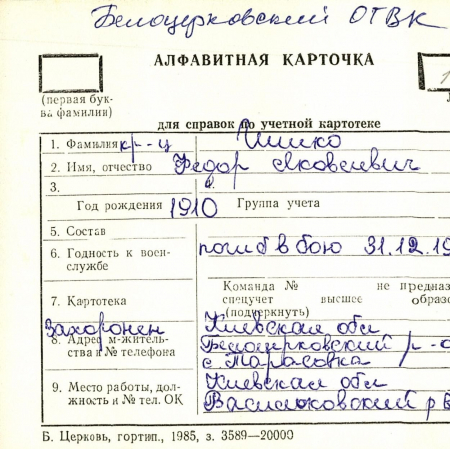 Белоцерковский ОГВК
АЛФАВИТНАЯ КАРТОЧКА
(первая бук-
ва фамилии)
для справок по учетной картотеке
1. Фамилия кр-ц Шишко
2. Имя, отчество Федор Яковлевич
3.
Год рождения 1910 Группа учета
5. Состав
6. Годность к воен-
службе
погиб в бою 31.12.19
Команда № не предназ
7. Картотека спецучет высшее образо
(подчеркнуть)
Захоронен Киевская обл
8. Адрес м-житель-
ства и № телефона
Белоцерковский р-о
с. Тарасовка
9. Место работы, дол-
жность и № тел. ОК
Киевская обл
Васильковский р
Б. Церковь, гортип., 1985, з. 3589—20000